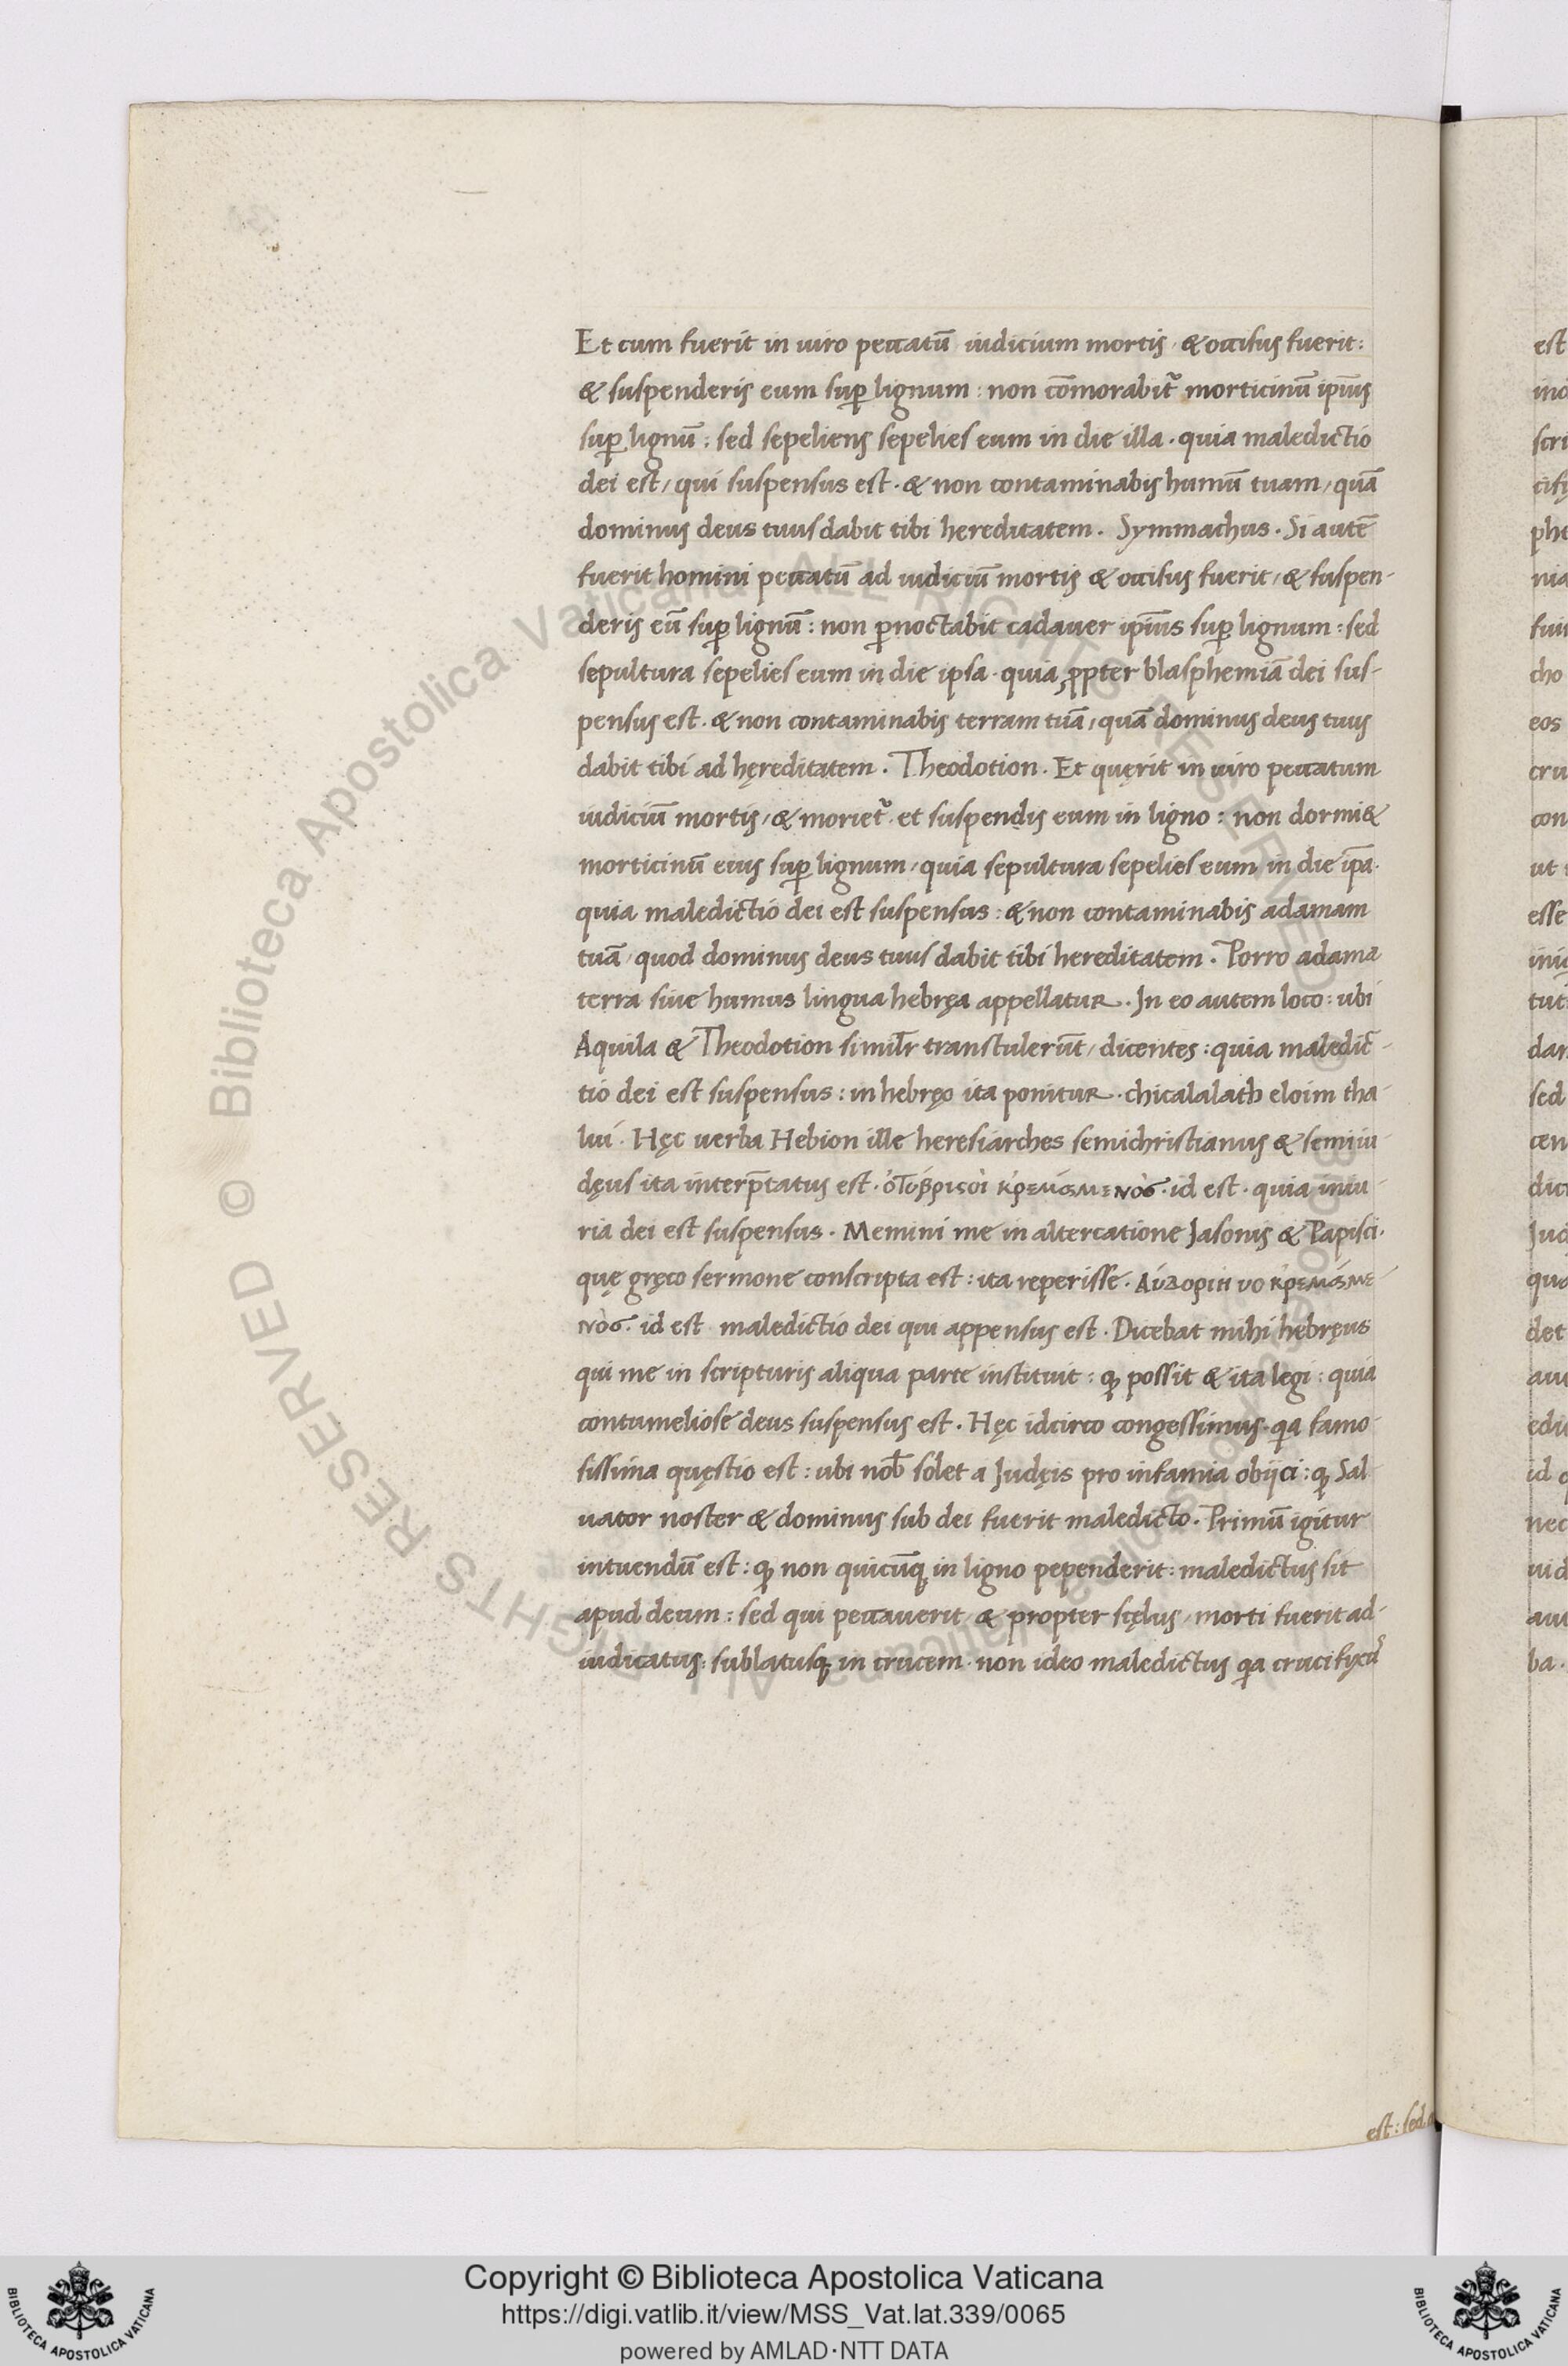 Et cum fuerit in uiro peccatū iudicium mortis, & occisus fuerit:
& suspenderis eum suꝑ lignum: non cōmorabit᷑ morticinū ip̄ius
suꝑ lignū: sed sepeliens sepelies eum in die illa. quia maledictio
dei est, qui suspensus est. & non contaminabis humū tuam, quā
dominus deus tuus dabit tibi hereditatem. Symmachus. Si autē
fuerit homini peccatū ad iudiciū mortis & occisus fuerit, & suspen-
deris eū suꝑ lignū: non ꝑnoctabit cadauer ip̄ius suꝑ lignum: sed
sepultura sepelies eum in die ipsa. quia ꝓpter blasphemiā dei sus-
pensus est. & non contaminabis terram tuā, quā dominus deus tuus
dabit tibi ad hęreditatem. Theodotion. Et quęrit in uiro peccatum
iudiciū mortis, & moriet᷑. et suspendis eum in ligno: non dormi&
morticinū eius suꝑ lignum, quia sepultura sepelies eum in die ip̄a.
quia maledictio dei est suspensus: & non contaminabis adamam
tuā, quod dominus deus tuus dabit tibi hereditatem. Porro adama
terra siue humus lingua hebręa appellatur. In eo autem loco: ubi
Aquila & Theodotion similr̄ transtulerūt, dicentes: quia maledic-
tio dei est suspensus: in hebręo ita ponitur. chicalalath eloim tha-
lui. Hęc uerba Hebion ille heresiarches semichristianus & semiiu-
dęus ita interp̄tatus est. ὁτύβρισοὶ κρεμάμενὸσ. id est. quia iniu-
ria dei est suspensus. Memini me in altercatione Iasonis & Papisci.
quę gręco sermone conscripta est: ita reperisse. κρεμάμε-
νὸσ. id est maledictio dei qui appensus est. Dicebat mihi hebręus
qui me in scripturis aliqua parte instituit: ꝙ possit & ita legi: quia
contumeliose deus suspensus est. Hęc idcirco congessimus. qa famo-
sissima quęstio est: ubi nob̄ solet a Iudęis pro infamia obijci: ꝙ Sal-
uator noster & dominus sub dei fuerit maledicto. Primū igitur
intuendū est: ꝙ non quicūqꝫ in ligno pependerit: maledictus sit
apud deum: sed qui peccauerit, & propter scęlus, morti fuerit ad-
iudicatus: sublatusqꝫ in crucem. non ideo maledictus qa crucifixus
est: sed
est
scri
phe
nia
cho
eos
cru
con
ut
esse
dar
sed
cen
dic
Iud
qua
det
id
nec
uid
ba.
© Biblioteca Apostolica Vaticana ALL RIGHTS RESERVED
© Biblioteca Apostolica Vaticana ALL RIGHTS RESERVED
Copyright © Biblioteca Apostolica Vaticana
https://digi.vatlib.it/view/MSS_Vat.lat.339/0065
powered by AMLAD·NTT DATA
BIBLIOTECA APOSTOLICA VATICANA
BIBLIOTECA APOSTOLICA VATICANA